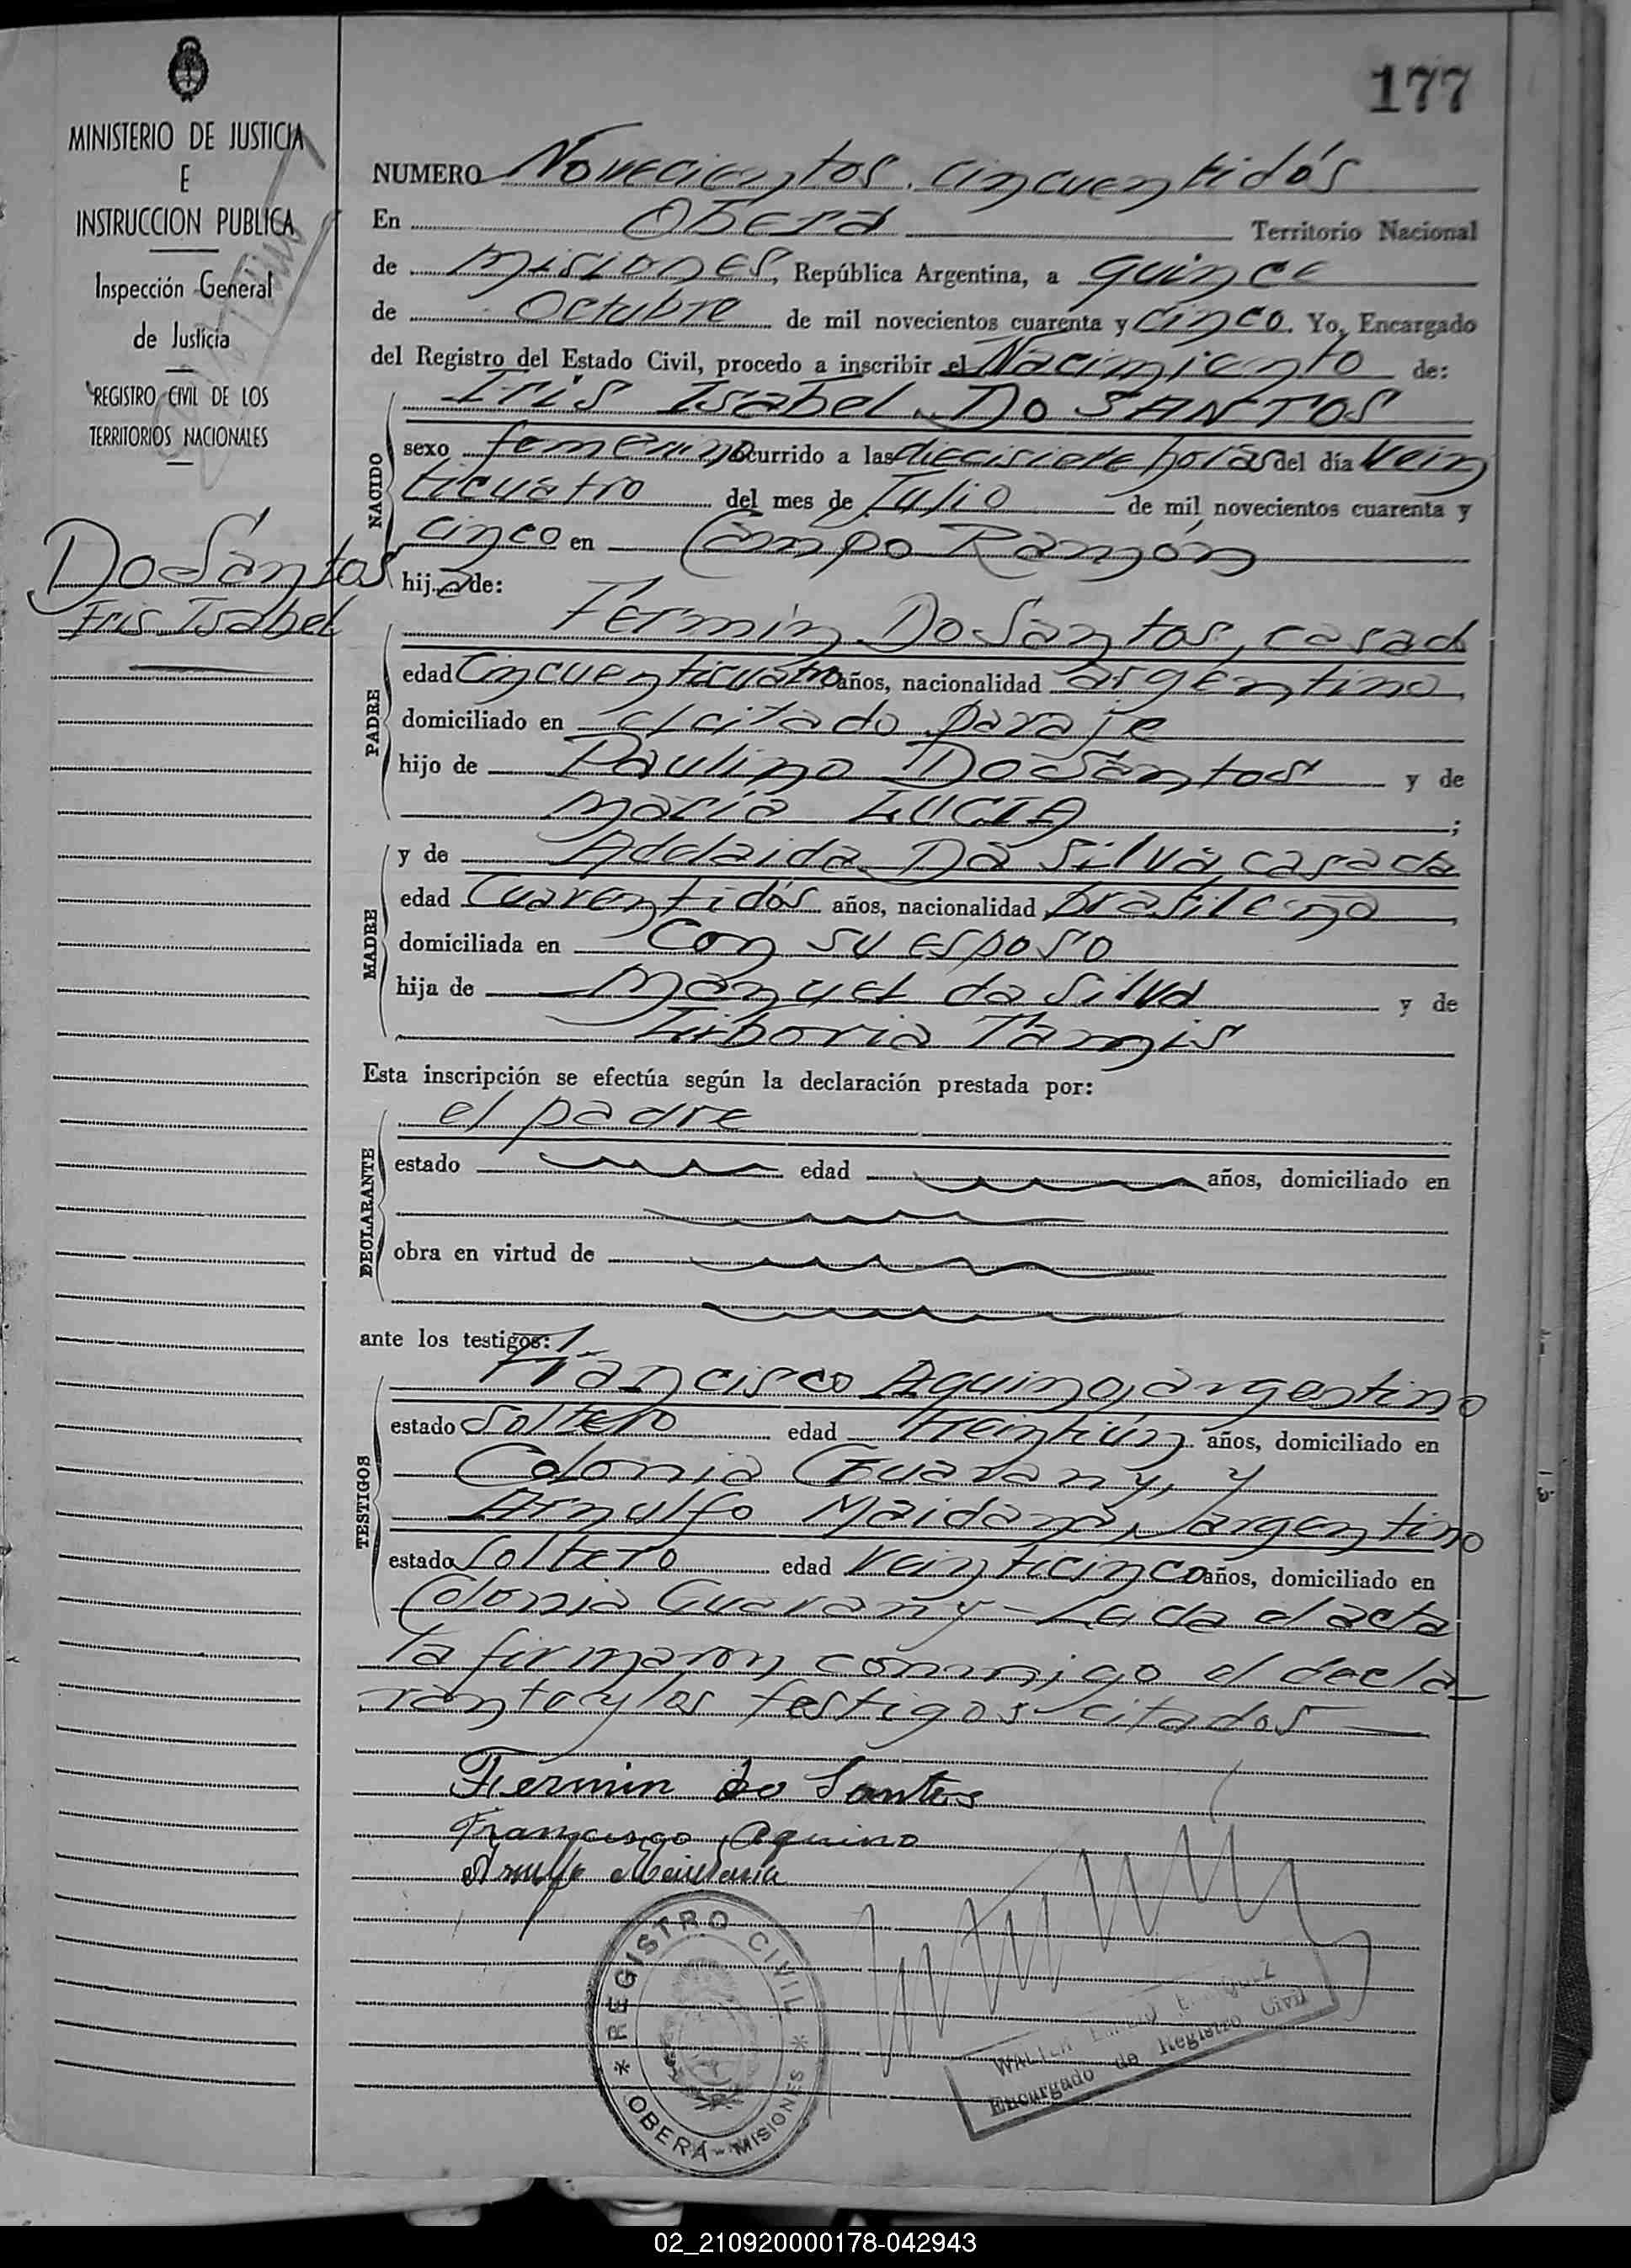 177
MINISTERIO DE JUSTICIA
E
INSTRUCCION PUBLICA
Inspección General
de Justicia
REGISTRO CIVIL DE LOS
TERRITORIOS NACIONALES
DoSantos
Iris Isabel
NUMERO Novecientos cincuentidós
En Oberá Territorio Nacional
de Misiones, República Argentina, a quince
de Octubre de mil novecientos cuarenta y cinco. Yo, Encargado
del Registro del Estado Civil, procedo a inscribir el Nacimiento de:
NACIDO
Iris Isabel Do SANTOS
sexo femenino ocurrido a las diecisiete horas del día vein
ticuatro del mes de Julio de mil novecientos cuarenta y
cinco en Campo Ramón
hija de:
PADRE
Fermín DoSantos, casad
edad Cincuenticuatro años, nacionalidad argentino
domiciliado en el citado paraje
hijo de Paulino DoSantos y de
maría LUCIA ;
MADRE
y de Adelaida Da Silva, casada
edad Cuarentidós años, nacionalidad brasileña
domiciliada en con su esposo
hija de Manuel da Silva y de
Esta inscripción se efectúa según la declaración prestada por:
DECLARANTE
el padre
estado edad años, domiciliado en
obra en virtud de
ante los testigos:
TESTIGOS
Francisco Aquino, argentino
estado Soltero edad treintiún años, domiciliado en
Colonia Guarany, y
Arnulfo Maidana, argentino
estado soltero edad veinticinco años, domiciliado en
Colonia Guarany - Leida el acta
la firmaron conmigo el decla-
rante y los testigos citados
Fermin do Santos
Francisco Aquino
Arnulfo Maidana
REGISTRO CIVIL
OBERÁ - MISIONES
WALTER
Encargado de Registro Civil
02_210920000178-042943